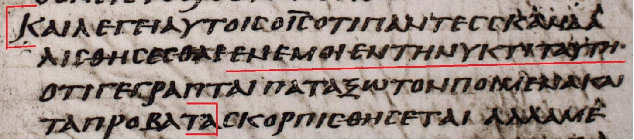 ΚΑΙΛΕΓΕΙΑΥΤΟΙΣΟΙ̅Σ̅ΟΤΙΠΑΝΤΕΣΣΚΑΝΔΑ
ΛΙΣΘΗΣΕΣΘΑΙΕΝΕΜΟΙΕΝΤΗΝΥΚΤΙΤΑΥΤΗ
ΟΤΙΓΕΓΡΑΠΤΑΙΠΑΤΑΞΩΤΟΝΠΟΙΜΕΝΑΚΑΙ
ΤΑΠΡΟΒΑΤΑΣΚΟΡΠΙΣΘΗΣΕΤΑΙΑΛΛΑΜΕ